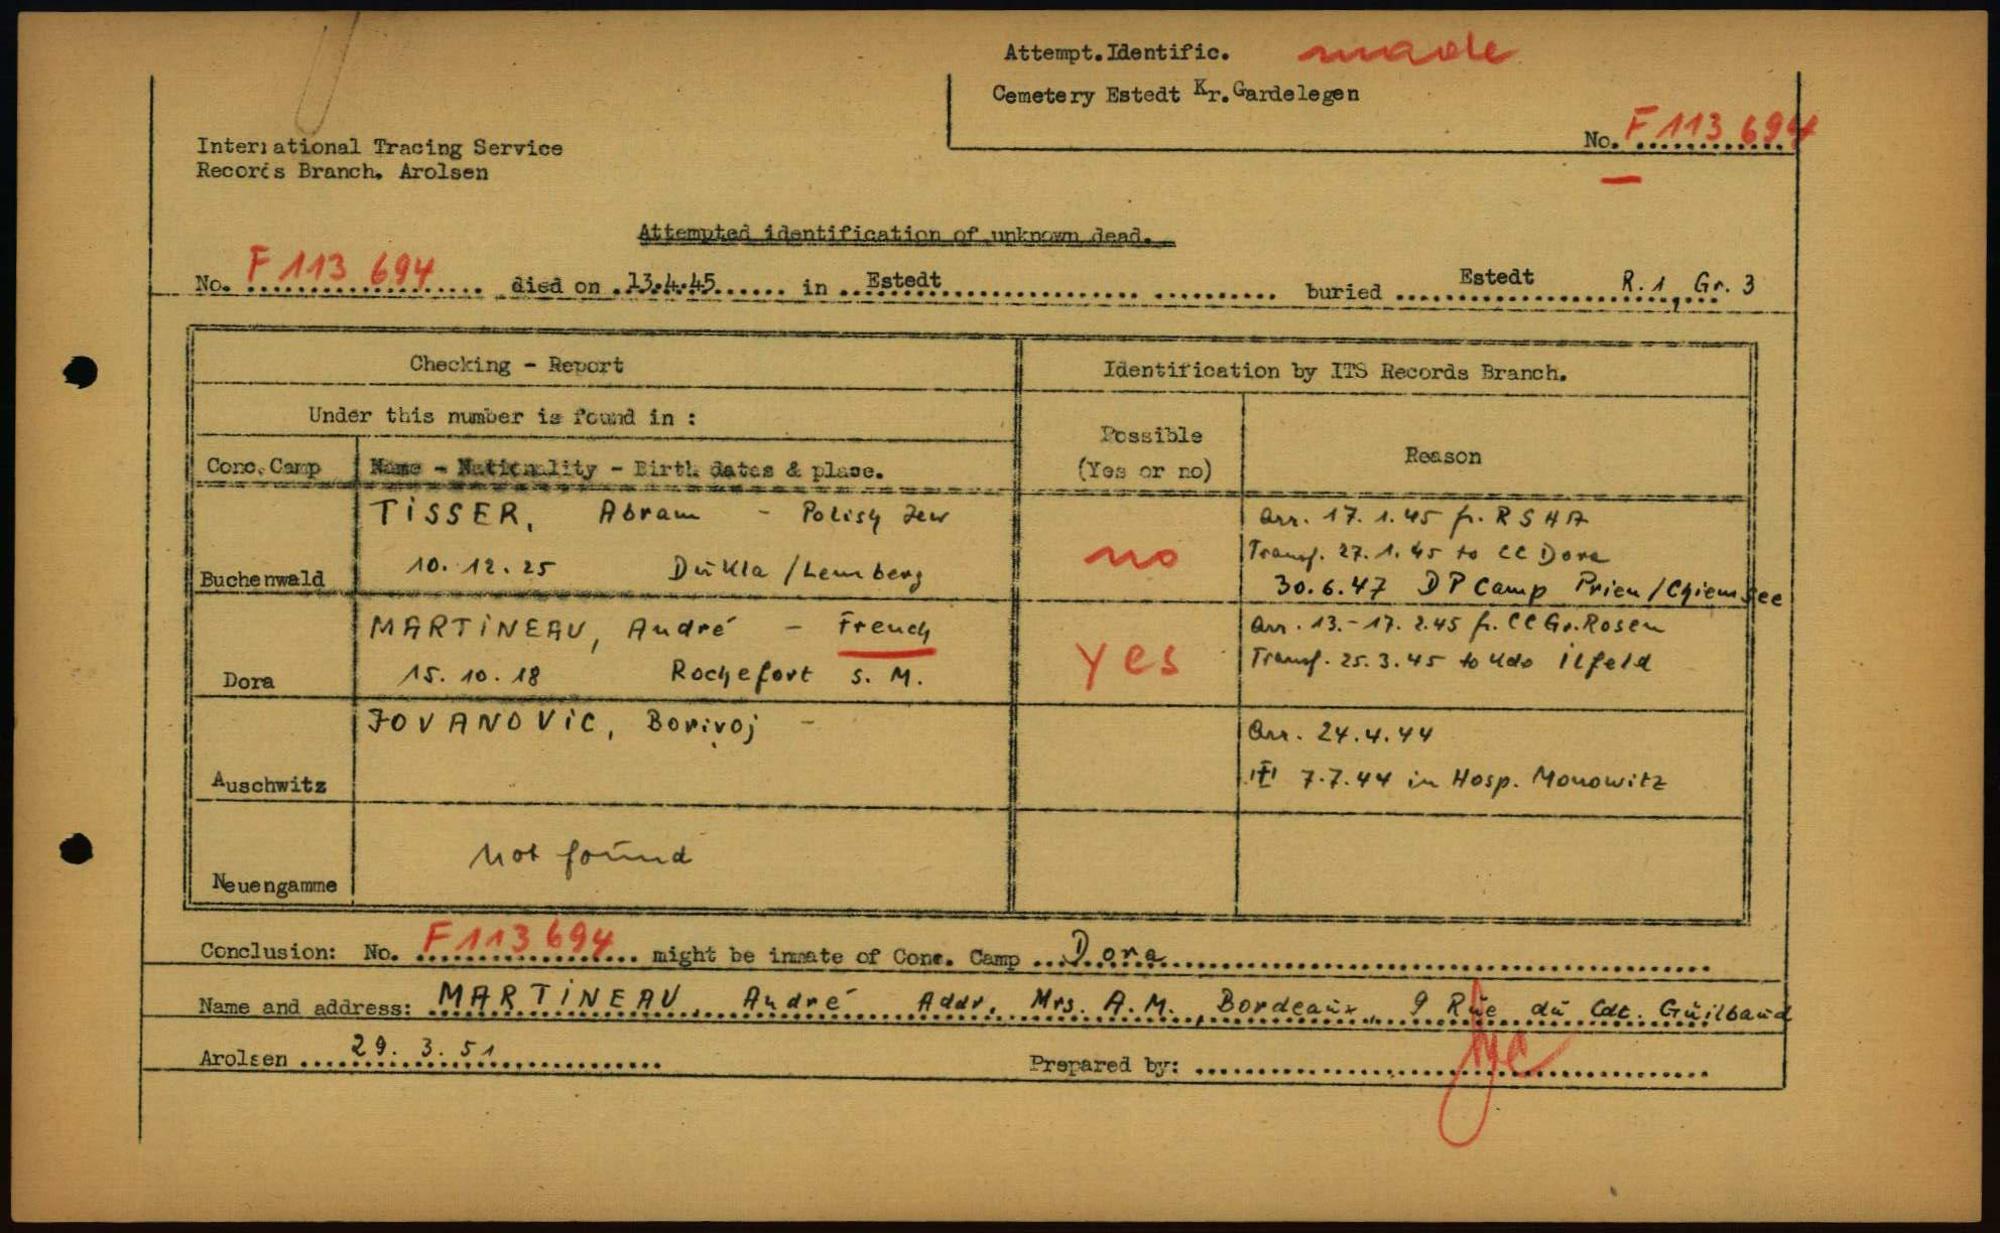 Attempt.Identific. made
Cemetery Estedt Kr.Gardelegen
No. F 113 694
International Tracing Service
Records Branch, Arolsen
Attempted identification of unknown dead.
No. F 113 694 died on 13.4.45 in Estedt buried Estedt R. 1, Gr. 3
Checking - Report
Identification by ITS Records Branch.
Under this number is found in :
Possible
(Yes or no)
Reason
Conc. Camp
Name - Nationality - Birth dates & place.
TISSER, Abram - Polish Jew
Arr. 17. 1. 45 fr. RSHA
10. 12. 25 Dukla / Lemberg
no
Transf. 27. 1. 45 to CC Dora
Buchenwald
30. 6. 47 DP Camp Prien / Chiemsee
MARTINEAU, André - French
Arr. 13.-17. 2.45 fr. CC Gr. Rosen
15. 10. 18 Rochefort s. M.
yes
Transf. 25. 3. 45 to Kdo Ilfeld
Dora
JOVANOVIC, Borivoj -
Arr. 24.4.44
Auschwitz
7.7.44 in Hosp. Monowitz
not found
Neuengamme
Conclusion: No. F 113 694 might be inmate of Conc. Camp Dora
Name and address: MARTINEAU, André Addr. Mrs. A. M., Bordeaux, 9 Rue du Cdt. Guilbaud
Arolsen 29. 3. 51 Prepared by: